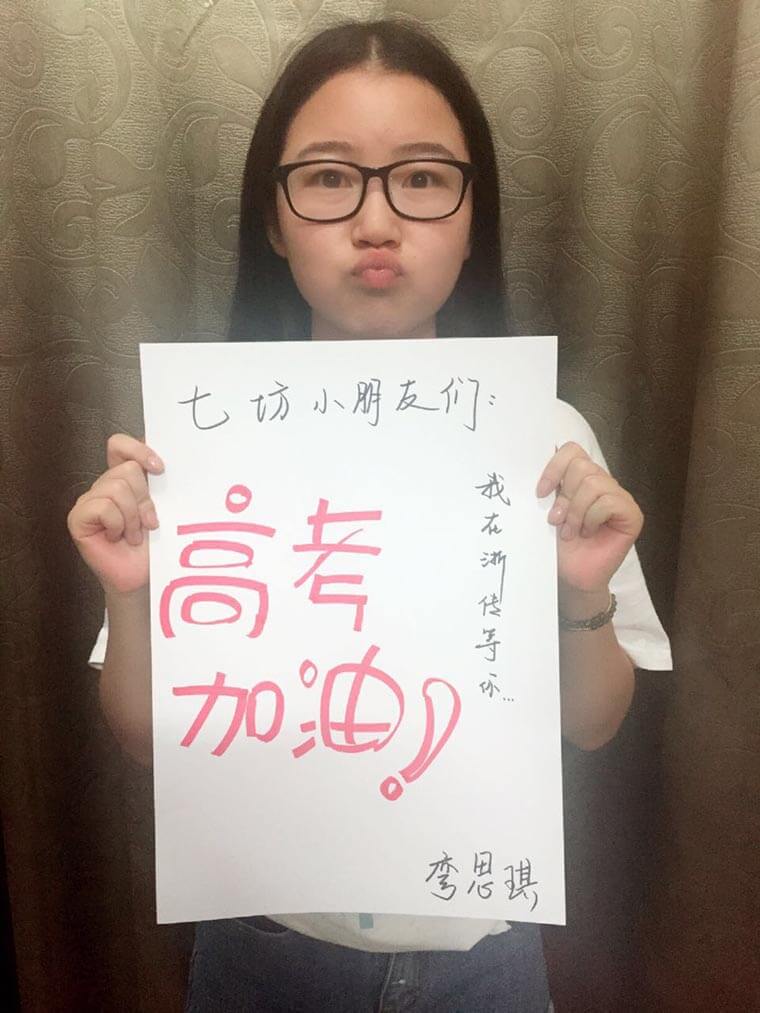 七坊小朋友们:
高考
加油!
我在浙传等你...
弯思琪